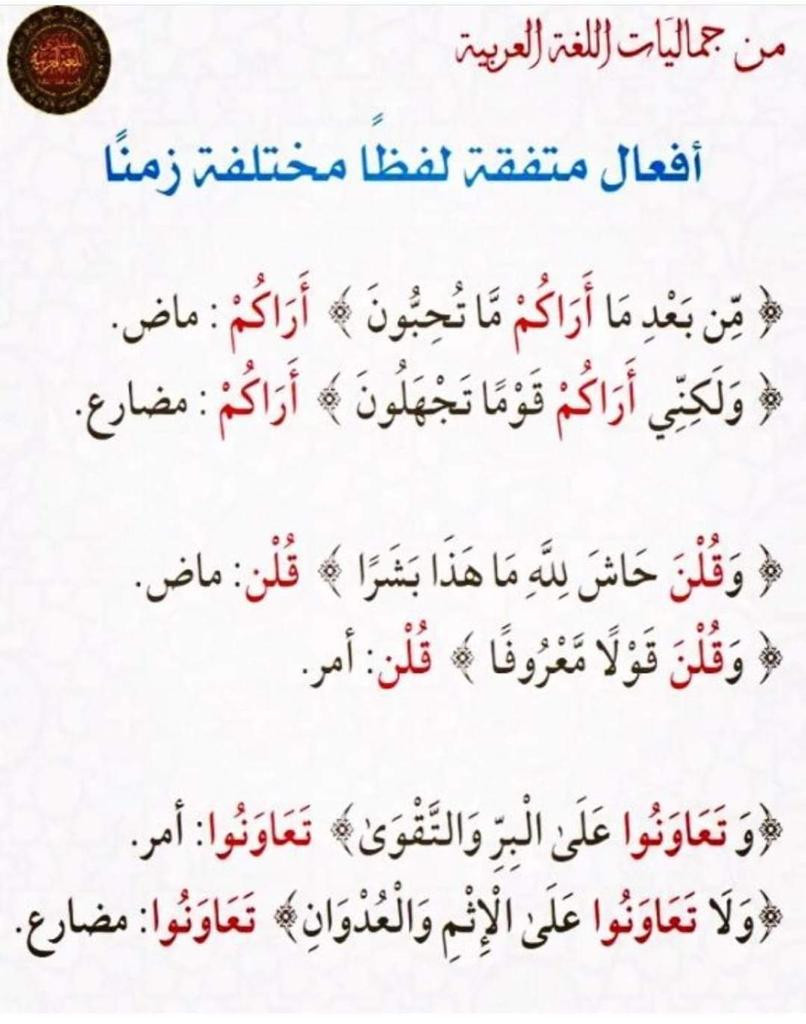 من جماليات اللغة العربية
أفعال متفقة لفظًا مختلفة زمنًا
﴿ مِّن بَعْدِ مَا أَرَاكُمْ مَّا تُحِبُّونَ ﴾ أَرَاكُمْ : ماض.
﴿ وَلَكِنِّي أَرَاكُمْ قَوْمًا تَجْهَلُونَ ﴾ أَرَاكُمْ : مضارع.
﴿ وَقُلْنَ حَاشَ لِلَّهِ مَا هَذَا بَشَرًا ﴾ قُلْن: ماض.
﴿ وَقُلْنَ قَوْلًا مَّعْرُوفًا ﴾ قُلْن: أمر.
﴿وَ تَعَاوَنُوا عَلَىٰ الْبِرِّ وَالتَّقْوَىٰ﴾ تَعَاوَنُوا: أمر.
﴿وَلَا تَعَاوَنُوا عَلَىٰ الْإِثْمِ وَالْعُدْوَانِ﴾ تَعَاوَنُوا: مضارع.